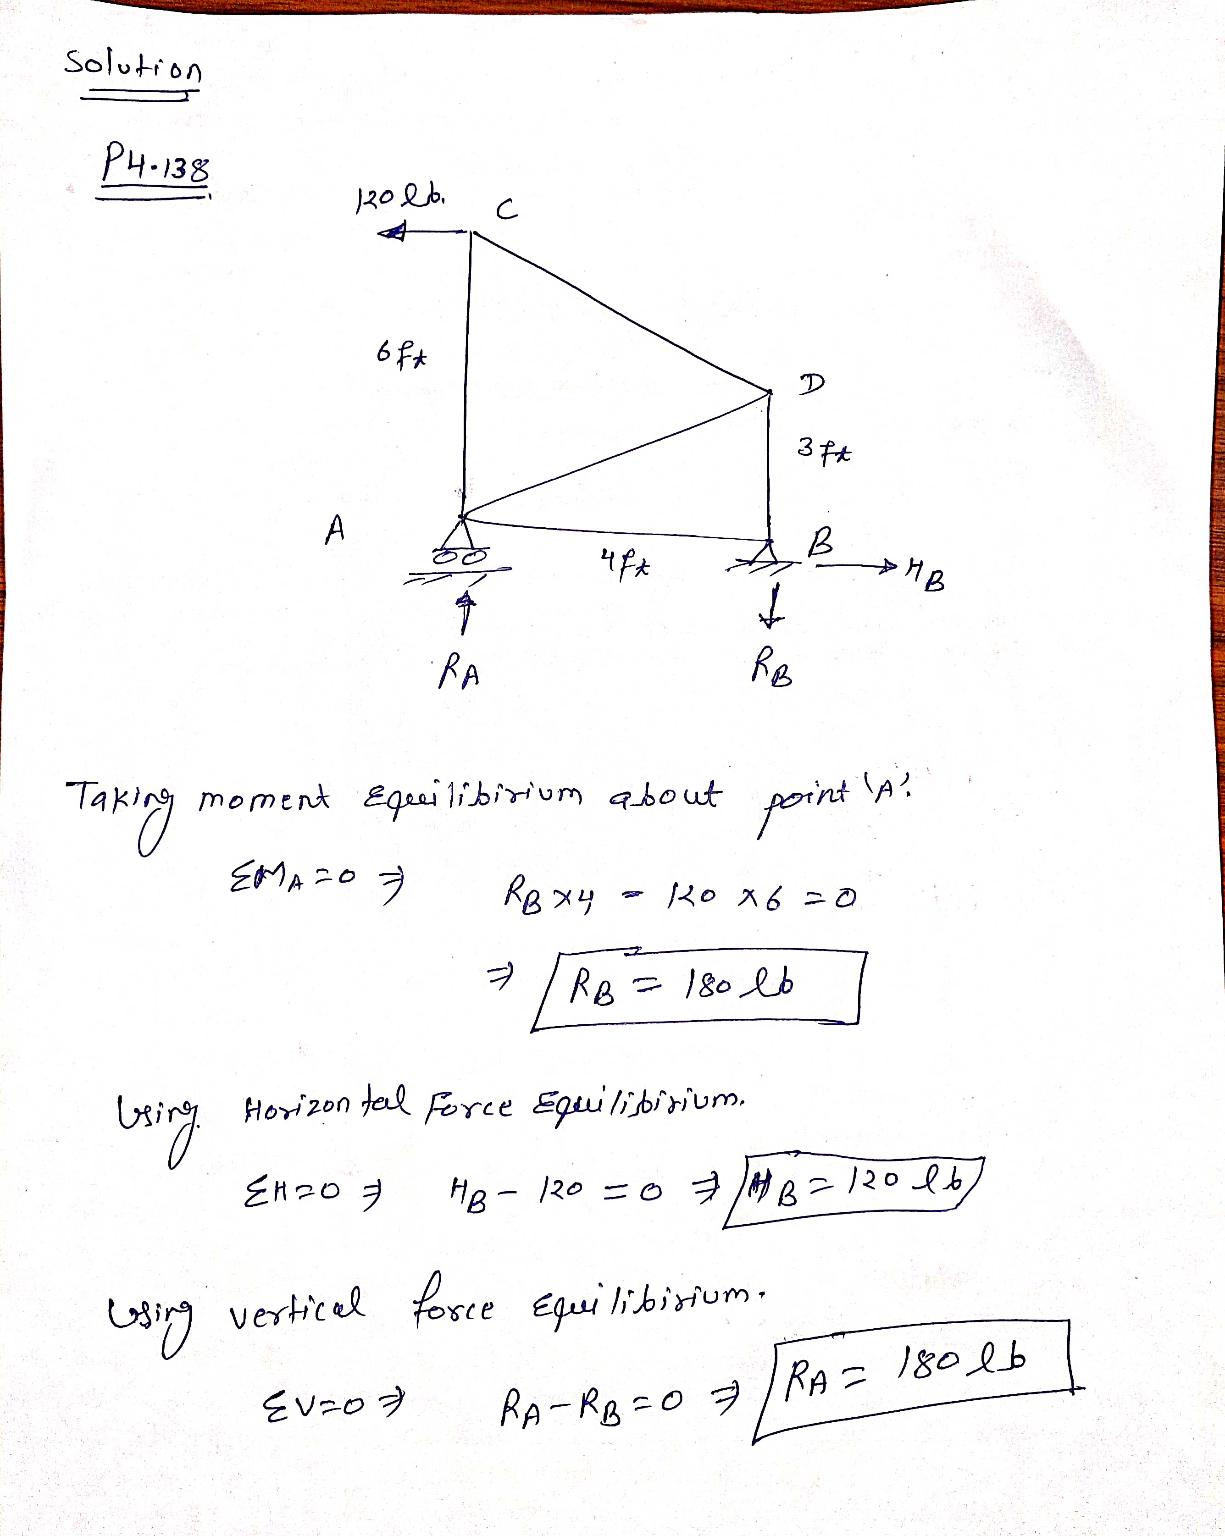 Solution
P4.138
120 lb. C
6 ft
D
3 ft
A
4 ft
B
HB
RA
RB
Taking moment Equilibirium about point 'A'.
ΣMA=0 ⇒ RB×4 - 120 ×6 = 0
⇒ RB = 180 lb
Using Horizontal Force Equilibirium.
ΣH=0 ⇒ HB - 120 = 0 ⇒ HB = 120 lb
Using vertical force Equilibirium.
ΣV=0 ⇒ RA-RB=0 ⇒ RA = 180 lb